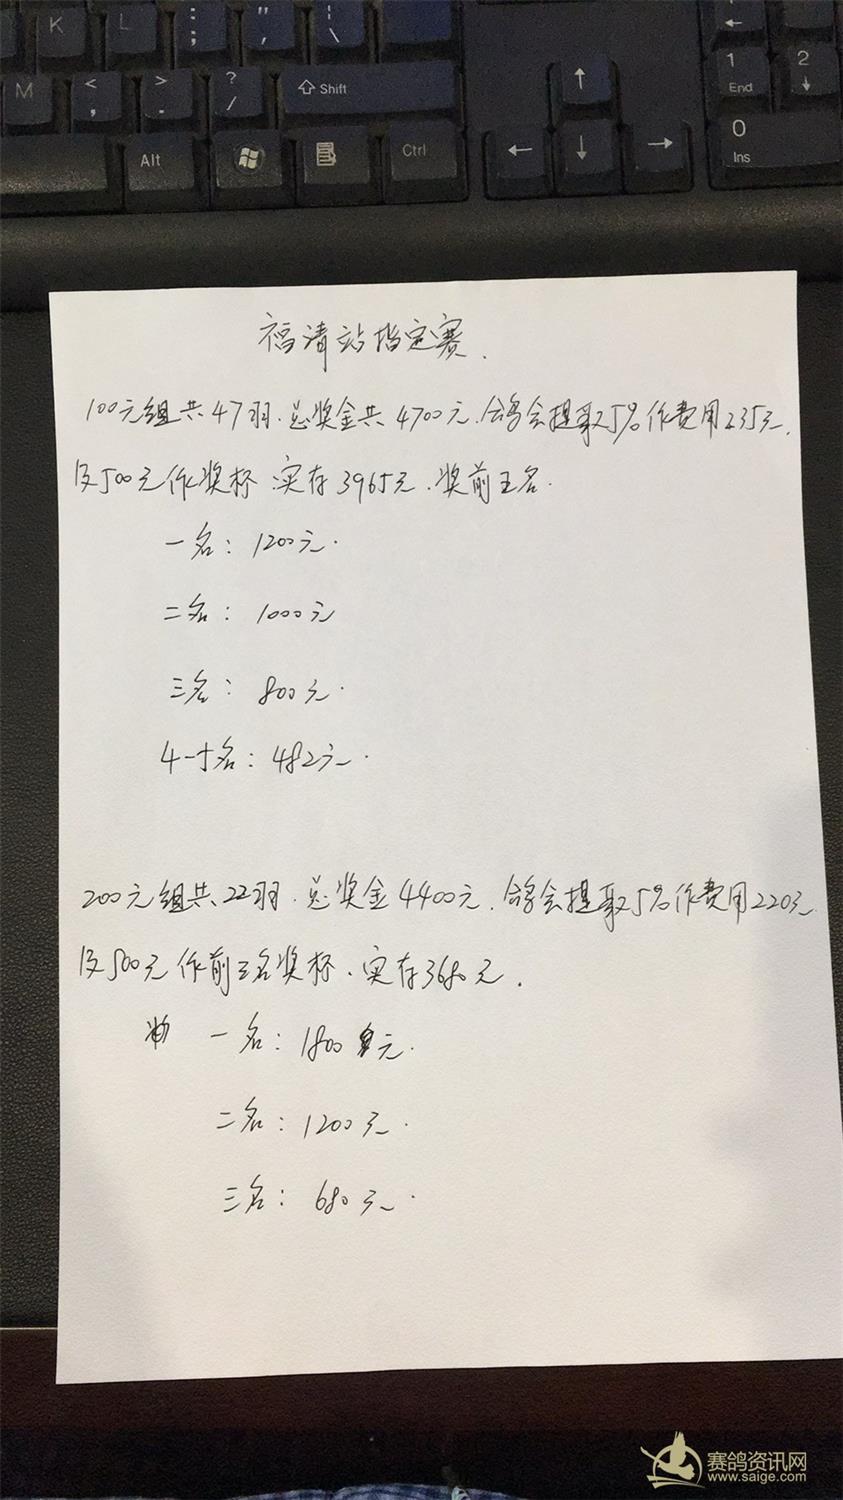 K
L
:
;
"
,
|
\
M
<
,
>
.
?
/
Shift
↑
1
End
2
↓
Alt
Ctrl
←
↓
→
0
Ins
福清站指定赛.
100元组共47羽.总奖金共4700元.鸽会提取5%作费用235元.
及500元作奖杯.实存3965元.奖前五名.
一名：1200元.
二名：1000元
三名：800元.
4-5名：482元.
200元组共22羽.总奖金4400元.鸽会提取5%作费用220元.
及500元作前三名奖杯.实存3680元.
一名：1800元.
二名：1200元.
三名：680元.
赛鸽资讯网
www.saige.com